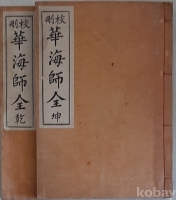 校刪
華海師全 坤
校刪
華海師全 乾
kobay